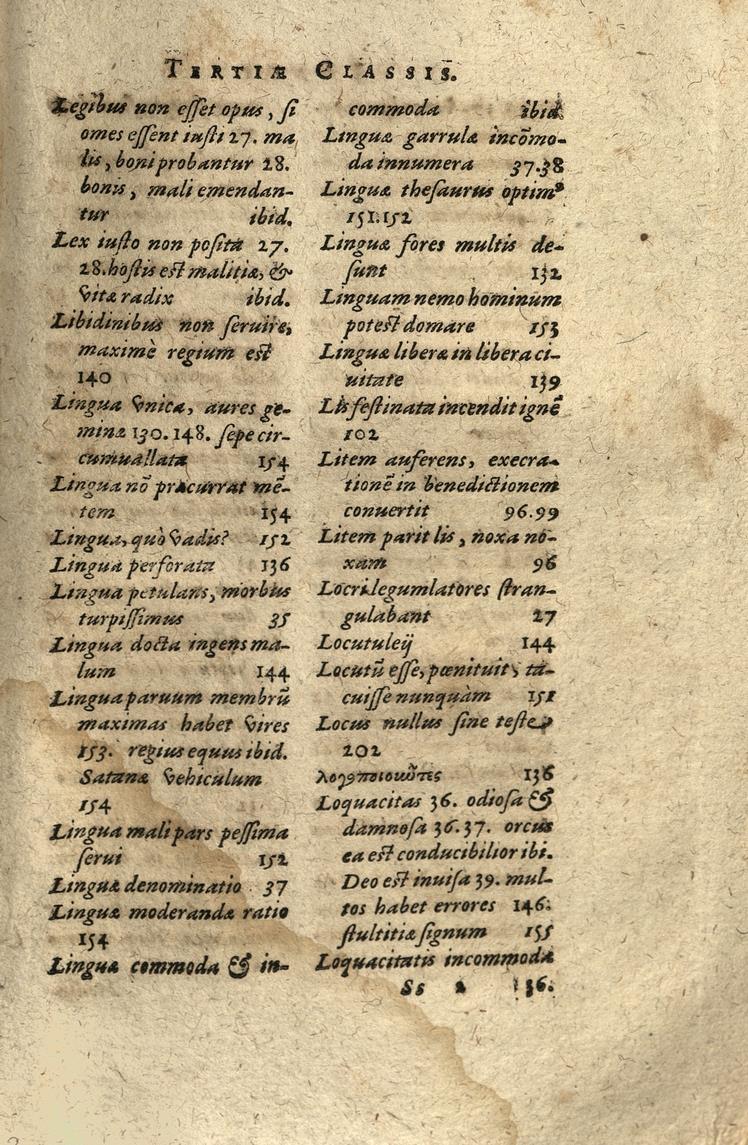 TERTIÆ CLASSIS.
Legibus non eſſet opus, ſi
omes eſſent iuſti 27. ma
lis, boni probantur 28.
bonis, mali emendan-
tur ibid.
Lex iuſto non poſita 27.
28. hoſtis eſt malitiæ, &
vitæ radix ibid.
Libidinibus non ſeruire,
maximè regium eſt
140
Lingua vnica, aures ge-
minæ 130. 148. ſepe cir-
cumuallata 154
Lingua nō præcurrat mē-
tem 154
Lingua, quò vadis? 152
Lingua perforata 136
Lingua petulans, morbus
turpiſſimus 35
Lingua docta ingens ma-
lum 144
Lingua paruum membrū
maximas habet vires
153. regius equus ibid.
Satanæ vehiculum
154
Lingua mali pars peſſima
ſerui 152
Linguæ denominatio 37
Linguæ moderandæ ratio
154
Linguæ commoda & in-
commoda ibid
Linguæ garrulæ incōmo-
da innumera 37.38
Linguæ theſaurus optimꝰ
151.152
Linguæ fores multis de-
ſunt 132
Linguam nemo hominum
poteſt domare 153
Linguæ liberæ in libera ci-
uitate 139
Lis feſtinata incendit ignē
102
Litem auferens, execra-
tionē in benedictionem
conuertit 96.99
Litem parit lis, noxa no-
xam 96
Locri legumlatores ſtran-
gulabant 27
Locutuleij 144
Locutū eſſe, pœnituit, ta-
cuiſſe nunquàm 151
Locus nullus ſine teſte
202
λογοποιοιῶτες 136
Loquacitas 36. odioſa &
damnoſa 36.37. orcus
ea eſt conducibilior ibi.
Deo eſt inuiſa 39. mul-
tos habet errores 146.
ſtultitiæ ſignum 155
Loquacitatis incommoda
Ss 2 136.